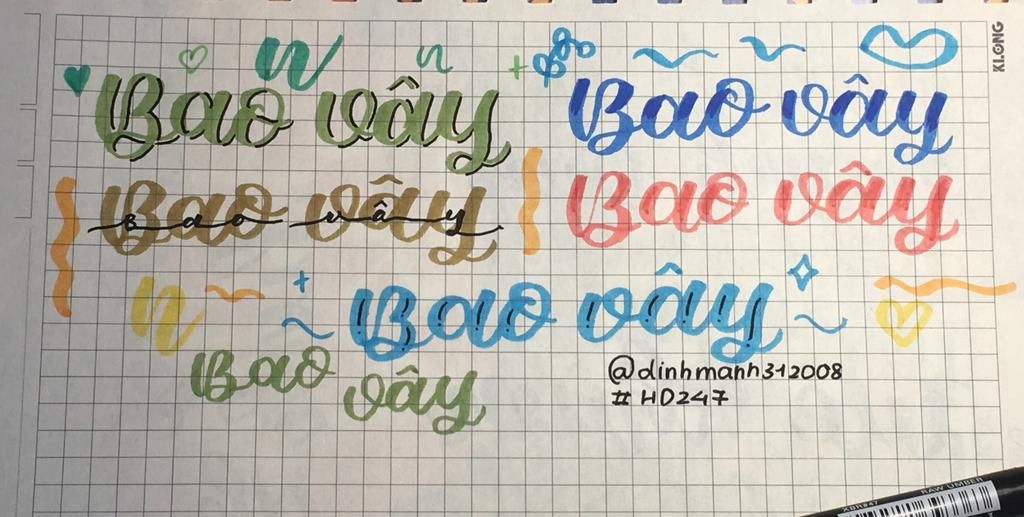 KLONG
Bao vây
Bao vây
Bao vây
bao vây
Bao vây
Bao vây
Bao vây
@dinhmanh312008
# HD247
XBR#47 RAW UMBER